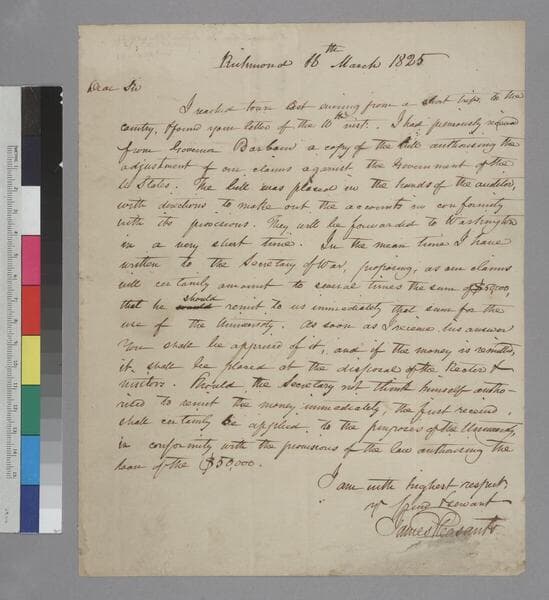 Richmond 16th March 1825
Dear Sir
I reached town last evening from a short trip to the
country, & found your letter of the 10th inst. I had previously received
from Governor Barbour a copy of the bill authorising the
adjustment of our claims against the Government of the
U States. The bill was placed in the hands of the auditor,
with directions to make out the accounts in conformity
with its provisions. They will be forwarded to Washington
in a very short time. In the mean time I have
written to the Secretary of War, proposing, as our claims
will certainly amount to several times the sum of $50,000,
that he should remit to us immediately that sum for the
use of the University. As soon as I receive his answer
You shall be apprised of it, and if the money is remitted,
it shall be placed at the disposal of the Rector &
visitors. Should the Secretary not think himself autho-
rised to remit the money immediately, the first received,
shall certainly be applied to the purposes of the University,
in conformity with the provisions of the law authorising the
loan of the $50,000.
I am with highest respect
yr friend & servant
James Pleasants